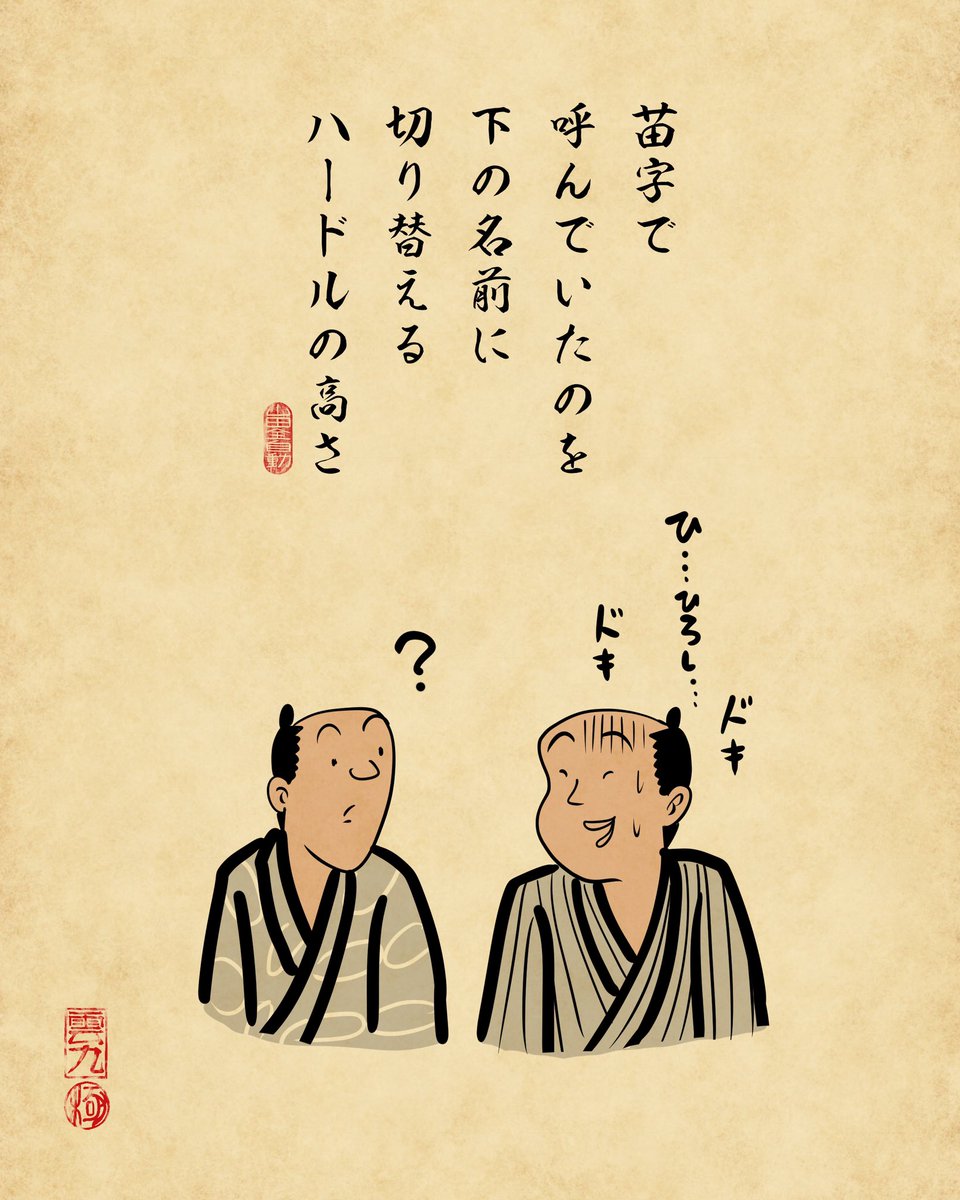 苗字で
呼んでいたのを
下の名前に
切り替える
ハードルの高さ
ひ…ひろし…
ドキ
ドキ
?